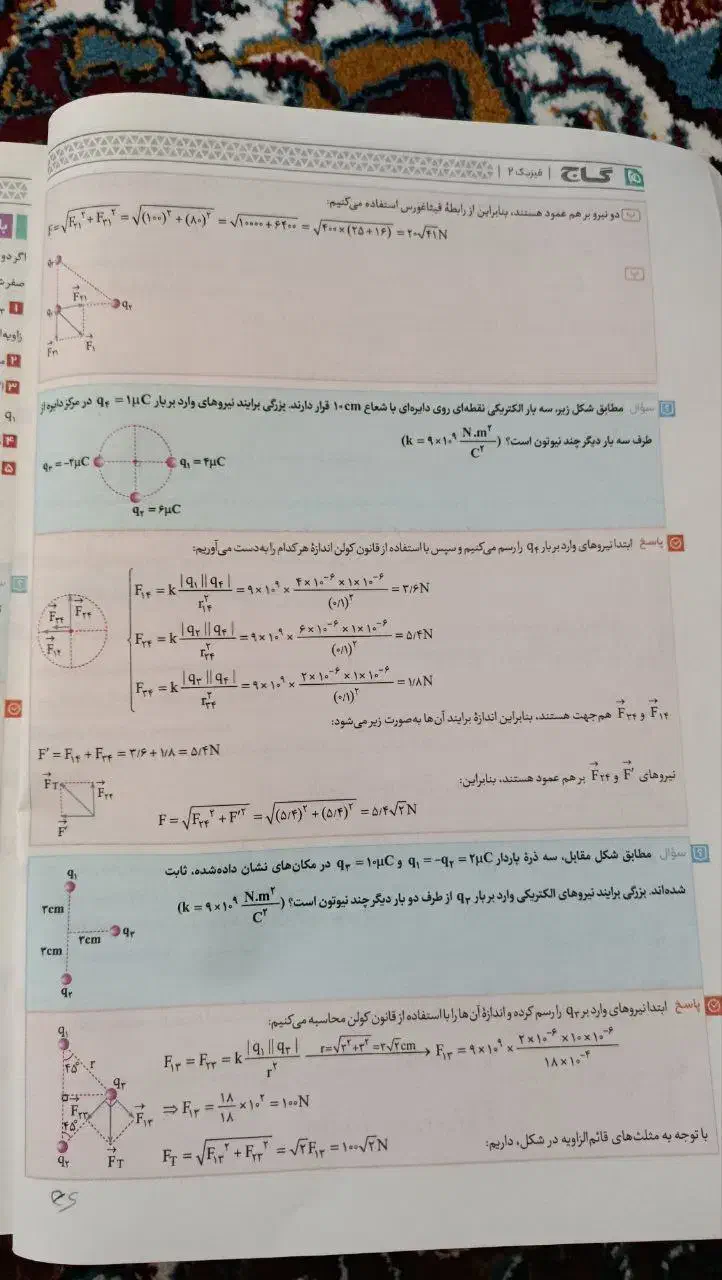 گاج | فیزیک ۲
دو نیرو بر هم عمود هستند، بنابراین از رابطهٔ فیثاغورس استفاده می‌کنیم:
F=√(F₂₁² + F₃₁²) = √((۱۰۰)² + (۸۰)²) = √(۱۰۰۰۰ + ۶۴۰۰) = √(۴۰۰ × (۲۵ + ۱۶)) = ۲۰√۴۱ N
سؤال مطابق شکل زیر، سه بار الکتریکی نقطه‌ای روی دایره‌ای با شعاع ۱۰cm قرار دارند. بزرگی برایند نیروهای وارد بر بار q₄ = ۱μC در مرکز دایره از
طرف سه بار دیگر چند نیوتون است؟ (k = ۹×۱۰⁹ N.m²/C²)
q₃ = −۲μC
q₁ = ۴μC
q₂ = ۶μC
پاسخ ابتدا نیروهای وارد بر بار q₄ را رسم می‌کنیم و سپس با استفاده از قانون کولن اندازهٔ هر کدام را به‌دست می‌آوریم:
F₁₄ = k |q₁||q₄| / r₁₄² = ۹×۱۰⁹ × (۴×۱۰⁻⁶ × ۱×۱۰⁻⁶) / (۰/۱)² = ۳/۶N
F₂₄ = k |q₂||q₄| / r₂₄² = ۹×۱۰⁹ × (۶×۱۰⁻⁶ × ۱×۱۰⁻⁶) / (۰/۱)² = ۵/۴N
F₃₄ = k |q₃||q₄| / r₃₄² = ۹×۱۰⁹ × (۲×۱۰⁻⁶ × ۱×۱۰⁻⁶) / (۰/۱)² = ۱/۸N
F₃₄
F₂₄
F₁₄
F₁₄ و F₃₄ هم‌جهت هستند، بنابراین اندازهٔ برایند آن‌ها به‌صورت زیر می‌شود:
F′ = F₁₄ + F₃₄ = ۳/۶ + ۱/۸ = ۵/۴N
نیروهای F′ و F₂₄ بر هم عمود هستند، بنابراین:
F = √(F₂₄² + F′²) = √((۵/۴)² + (۵/۴)²) = ۵/۴√۲ N
F_T
F₂₄
F′
سؤال مطابق شکل مقابل، سه ذرهٔ باردار q₁ = −q₂ = ۲μC و q₃ = ۱۰μC در مکان‌های نشان داده‌شده، ثابت
شده‌اند. بزرگی برایند نیروهای الکتریکی وارد بر بار q₃ از طرف دو بار دیگر چند نیوتون است؟ (k = ۹×۱۰⁹ N.m²/C²)
q₁
۳cm
۳cm
q₃
۳cm
q₂
پاسخ ابتدا نیروهای وارد بر q₃ را رسم کرده و اندازهٔ آن‌ها را با استفاده از قانون کولن محاسبه می‌کنیم:
F₁₃ = F₂₃ = k |q₁||q₃| / r² r=√(۳²+۳²)=۳√۲cm → F₁₃ = ۹×۱۰⁹ × (۲×۱۰⁻⁶ × ۱۰×۱۰⁻⁶) / (۱۸×۱۰⁻⁴)
⇒ F₁₃ = ۱۸/۱۸ × ۱۰² = ۱۰۰N
با توجه به مثلث‌های قائم‌الزاویه در شکل، داریم:
F_T = √(F₁₃² + F₂₃²) = √۲F₁₃ = ۱۰۰√۲ N
q₁
۴۵°
r
q₃
F₂₃
F₁₃
۴۵°
q₂
F_T